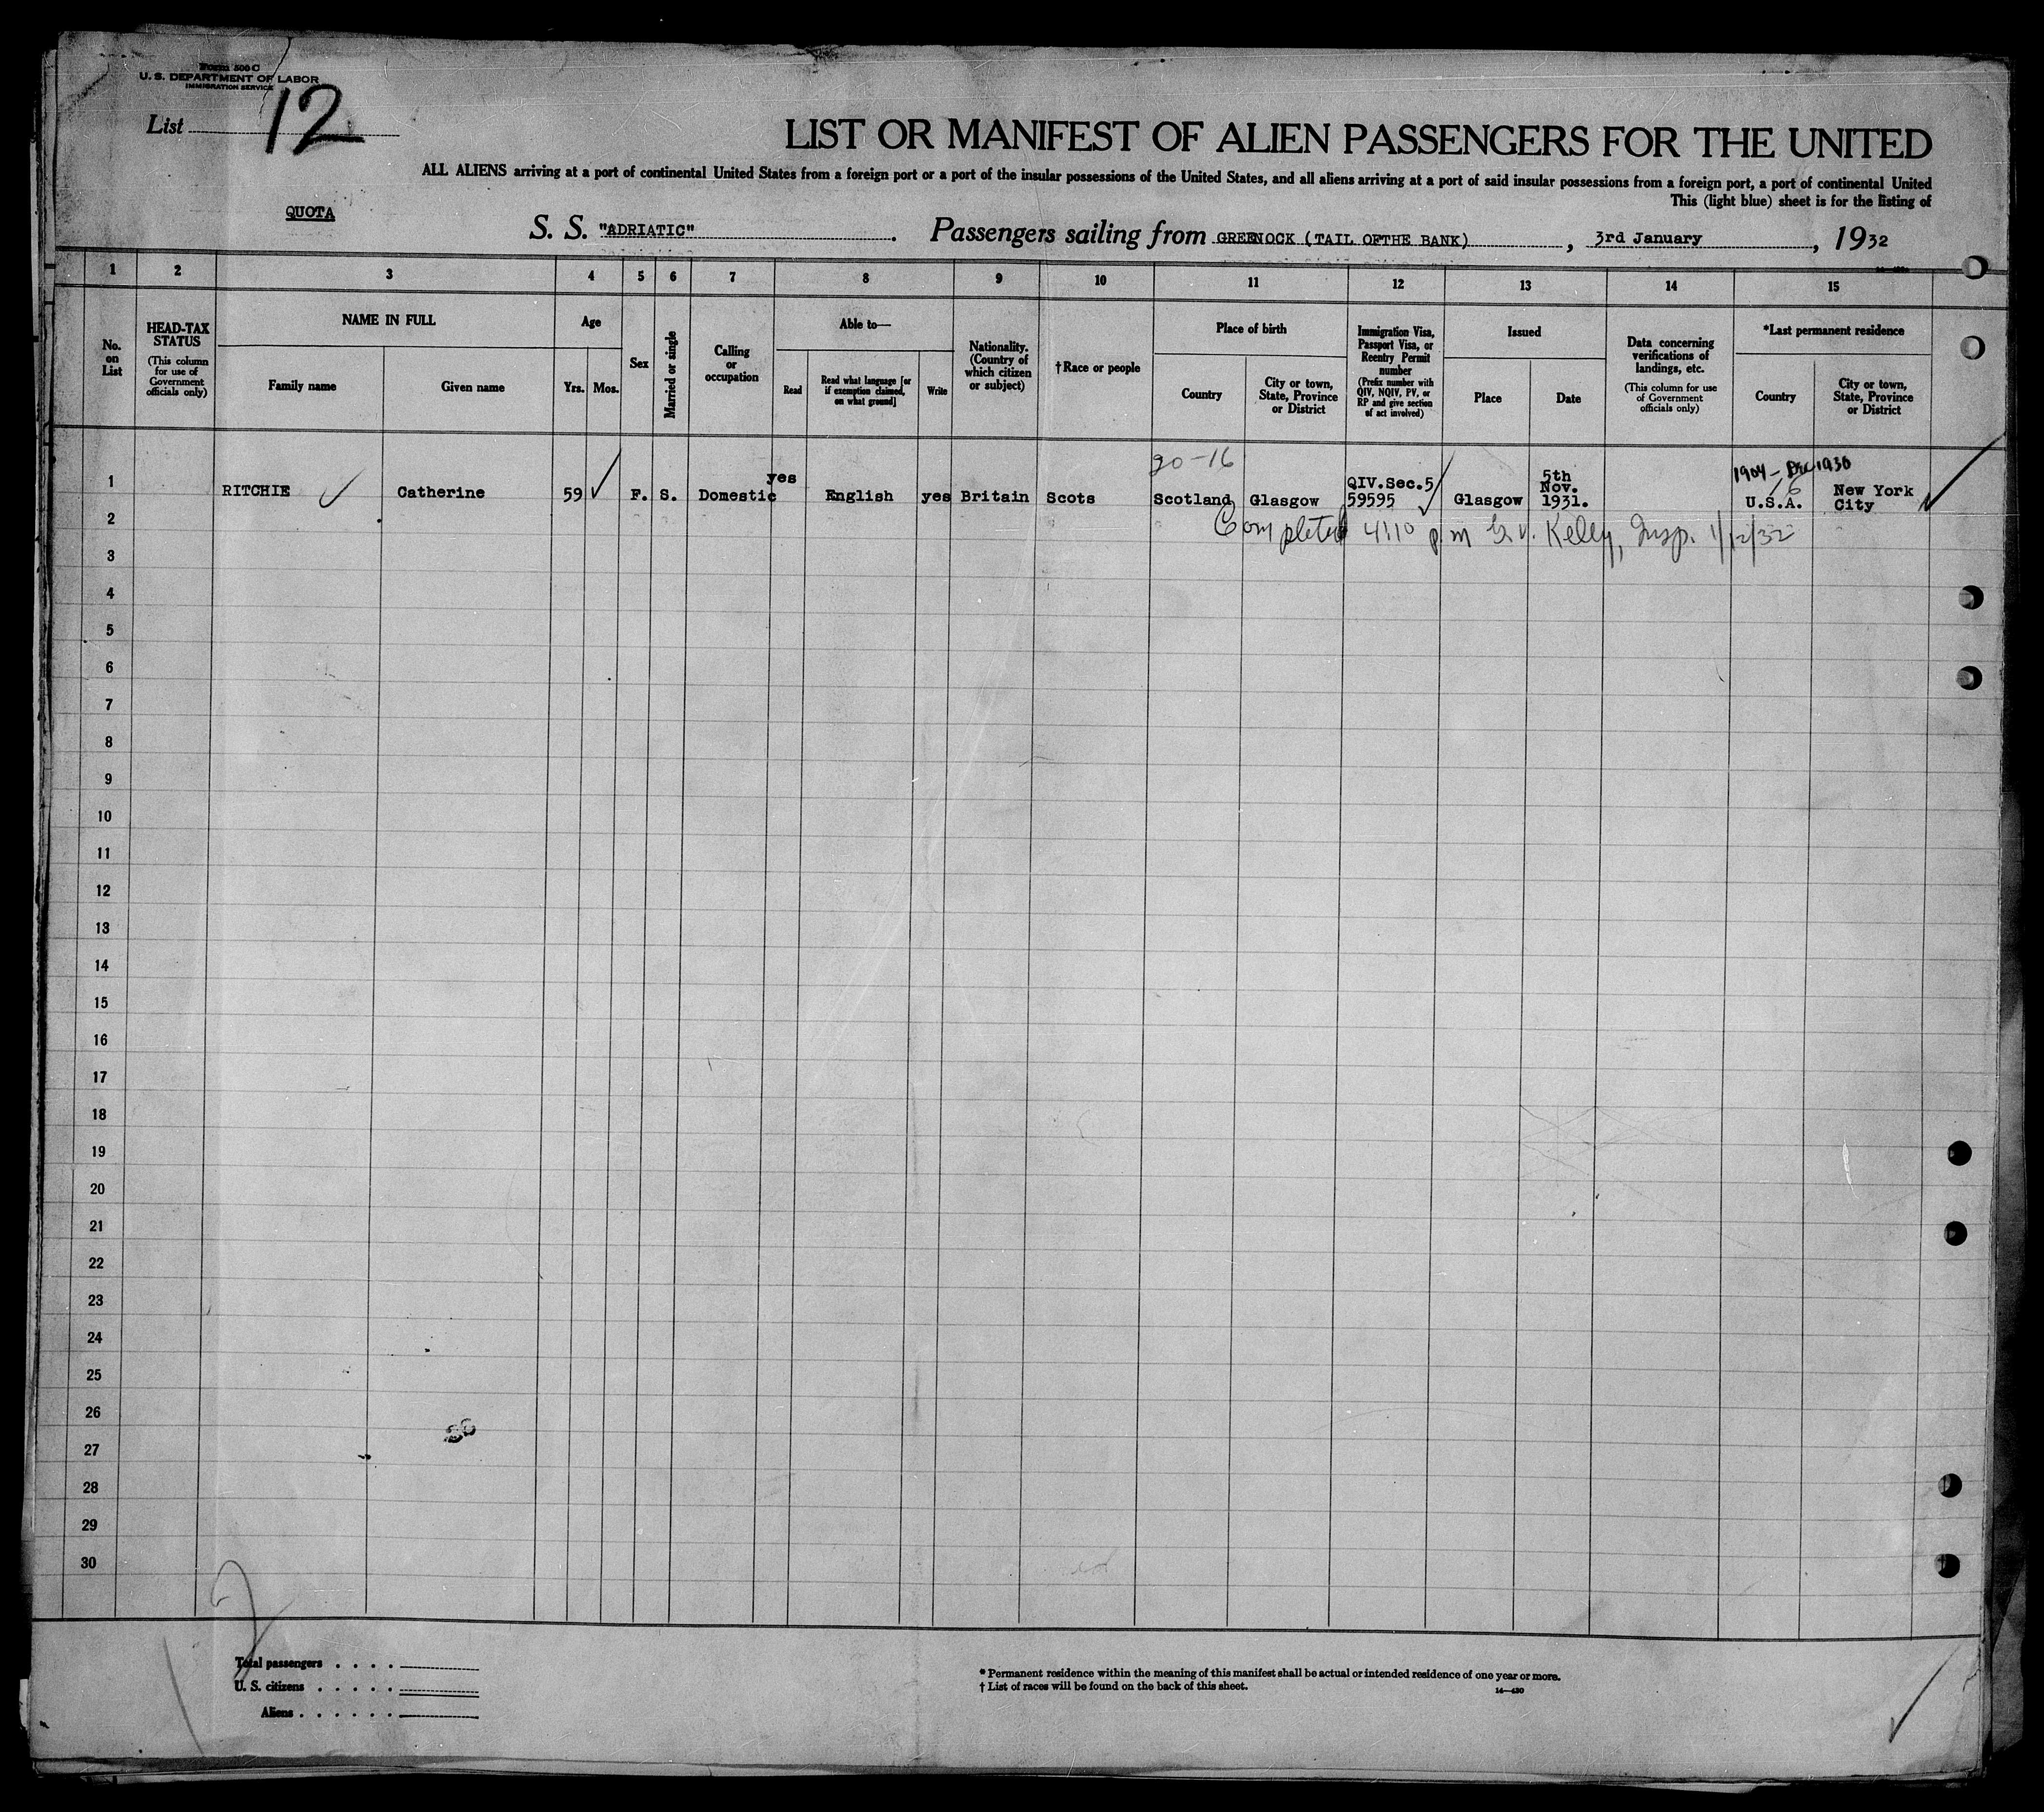 Form 500 C
U. S. DEPARTMENT OF LABOR
IMMIGRATION SERVICE
List 12
LIST OR MANIFEST OF ALIEN PASSENGERS FOR THE UNITED
ALL ALIENS arriving at a port of continental United States from a foreign port or a port of the insular possessions of the United States, and all aliens arriving at a port of said insular possessions from a foreign port, a port of continental United
This (light blue) sheet is for the listing of
QUOTA
S. S. "ADRIATIC". Passengers sailing from GREENOCK (TAIL OFTHE BANK), 3rd January, 1932
1 2 3 4 5 6 7 8 9 10 11 12 13 14 15
No. on List
HEAD-TAX STATUS
(This column for use of Government officials only)
NAME IN FULL
Family name
Given name
Age
Yrs.
Mos.
Sex
Married or single
Calling or occupation
Able to—
Read
Read what language [or if exemption claimed, on what ground]
Write
Nationality. (Country of which citizen or subject)
†Race or people
Place of birth
Country
City or town, State, Province or District
Immigration Visa, Passport Visa, or Reentry Permit number
(Prefix number with QIV, NQIV, PV, or RP and give section of act involved)
Issued
Place
Date
Data concerning verifications of landings, etc.
(This column for use of Government officials only)
*Last permanent residence
Country
City or town, State, Province or District
20-16
1904 - Dec 1930
16
1 RITCHIE Catherine 59 F. S. Domestic yes English yes Britain Scots Scotland Glasgow QIV.Sec.5 59595 Glasgow 5th Nov. 1931. U.S.A. New York City
Completed 4:10 p.m Kelly, Insp. 1/12/32
2
3
4
5
6
7
8
9
10
11
12
13
14
15
16
17
18
19
20
21
22
23
24
25
26
27
28
29
30
Total passengers . . . .
U. S. citizens . . . . .
Aliens . . . . . .
* Permanent residence within the meaning of this manifest shall be actual or intended residence of one year or more.
† List of races will be found on the back of this sheet.
14—430